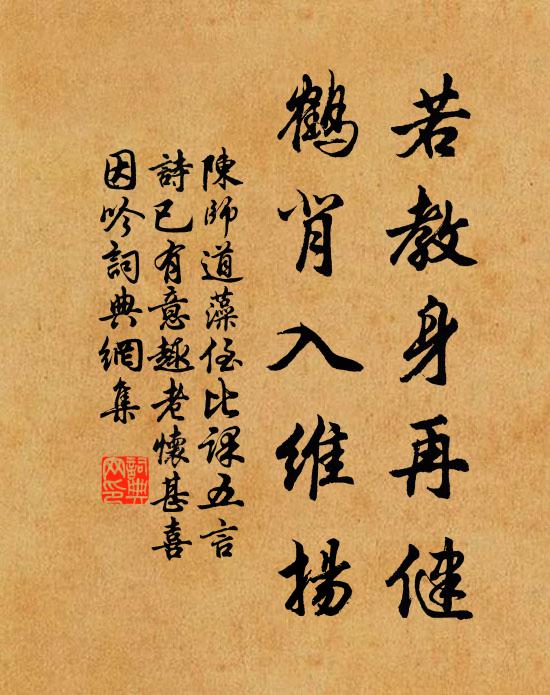 若教身再健
鶴背入維揚
陳師道藻侄比課五言
詩已有意趣老懷甚喜
因吟詞典網集
詞典
网印